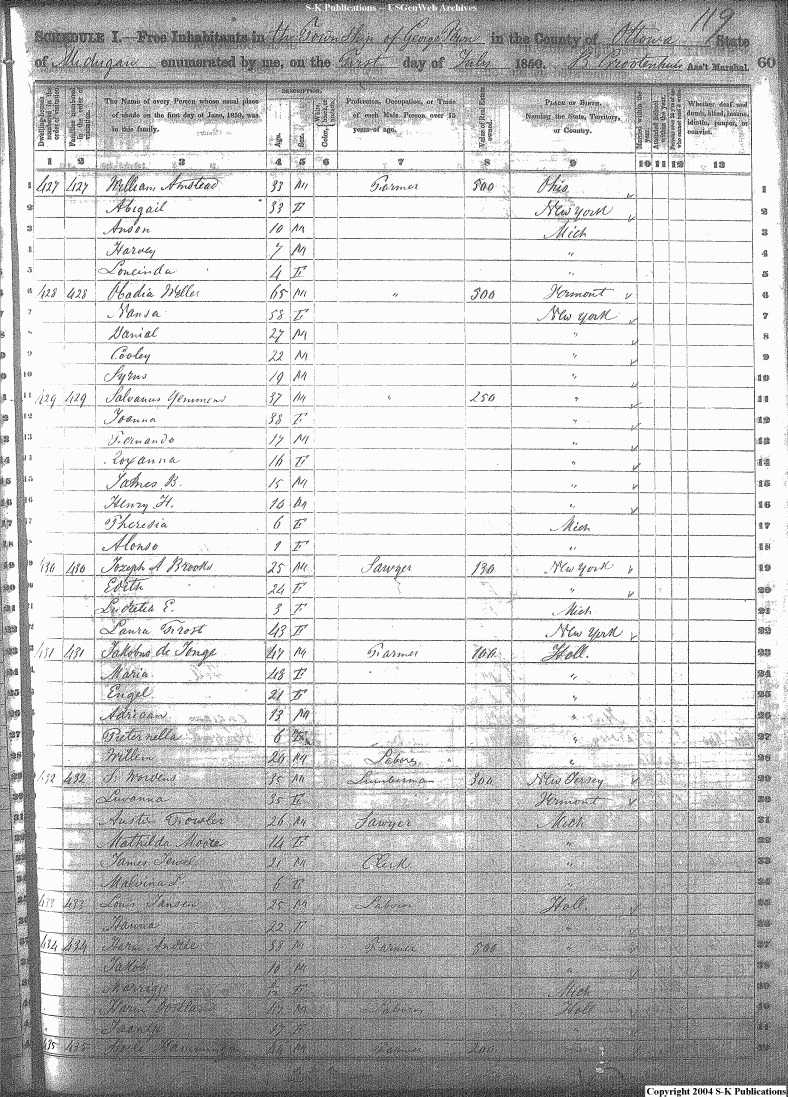 S-K Publications -- USGenWeb Archives
119
SCHEDULE I.—Free Inhabitants in the Township of George Town in the County of Ottowa State
of Michigan enumerated by me, on the First day of July 1850. Ass't Marshal. 60
Dwelling-houses numbered in the order of visitation.
Families numbered in the order of visitation.
The Name of every Person whose usual place of abode on the first day of June, 1850, was in this family.
DESCRIPTION.
Age.
Sex.
Color, White, black, or mulatto.
Profession, Occupation, or Trade of each Male Person over 15 years of age.
Value of Real Estate owned.
PLACE OF BIRTH, Naming the State, Territory, or Country.
Married within the year.
Attended School within the year.
Whether deaf and dumb, blind, insane, idiotic, pauper, or convict.
1 2 3 4 5 6 7 8 9 10 11 12 13
1 427 427 William Amstead 33 M Farmer 500 Ohio 1
2 Abigail 33 F New York 2
3 Anson 10 M Mich 3
4 Harvey 7 M " 4
5 Loucinda 4 F " 5
6 428 428 Obadia Weller 65 M " 300 Vermont 6
7 Nansa 58 F New York 7
8 Danial 27 M " 8
9 Cooley 22 M " 9
10 Syrus 19 M " 10
11 429 429 Salvanus Yemmons 37 M " 250 " 11
12 Joanna 38 F " 12
13 Fernando 17 M " 13
14 Roxanna 16 F " 14
15 James B. 15 M " 15
16 Henry H. 10 M " 16
17 Theresia 6 F Mich 17
18 Alonso 1 F " 18
19 430 430 Jozeph A Brooks 25 M Sawyer 130 New York 19
20 Edith 24 F " 20
21 Ludetia E. 3 F Mich 21
22 Laura Frost 43 F New York 22
23 431 431 Jakobus de Jonge 47 M Farmer 100 Holl. 23
24 Maria 48 F " 24
25 Engel 21 F " 25
26 Adriaan 13 M " 26
27 Pieternella 6 F " 27
28 Willem 20 M Labores " 28
29 432 432 S. Wordens 35 M Lumberman 300 New Jersey 29
30 Luvanna 35 F Vermont 30
31 26 M Sawyer Mich 31
32 Mathilda Moore 14 F " 32
33 James 21 M Clerk " 33
34 Malvina L. 6 F " 34
35 433 433 Louis Jansen 25 M Labores Holl. 35
36 Hanna 22 F " 36
37 434 434 Harm 38 M Farmer 500 " 37
38 Jakob 10 M " 38
39 F Mich 39
40 Harm M Labores Holl 40
41 17 F 41
42 435 435 M Farmer 200 42
Copyright 2004 S-K Publications